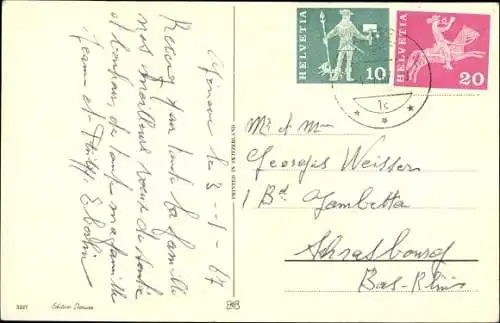 Genève le 3-1-67
Recevez pour toute la famille
nos meilleurs voeux de santé
et bonheur, de toute ma famille
Jeanne et
HELVETIA
10
HELVETIA
20
1c
Mr et Mme
Georges Weisser
1 Bd. Gambetta
Strasbourg
Bas-Rhin
3227